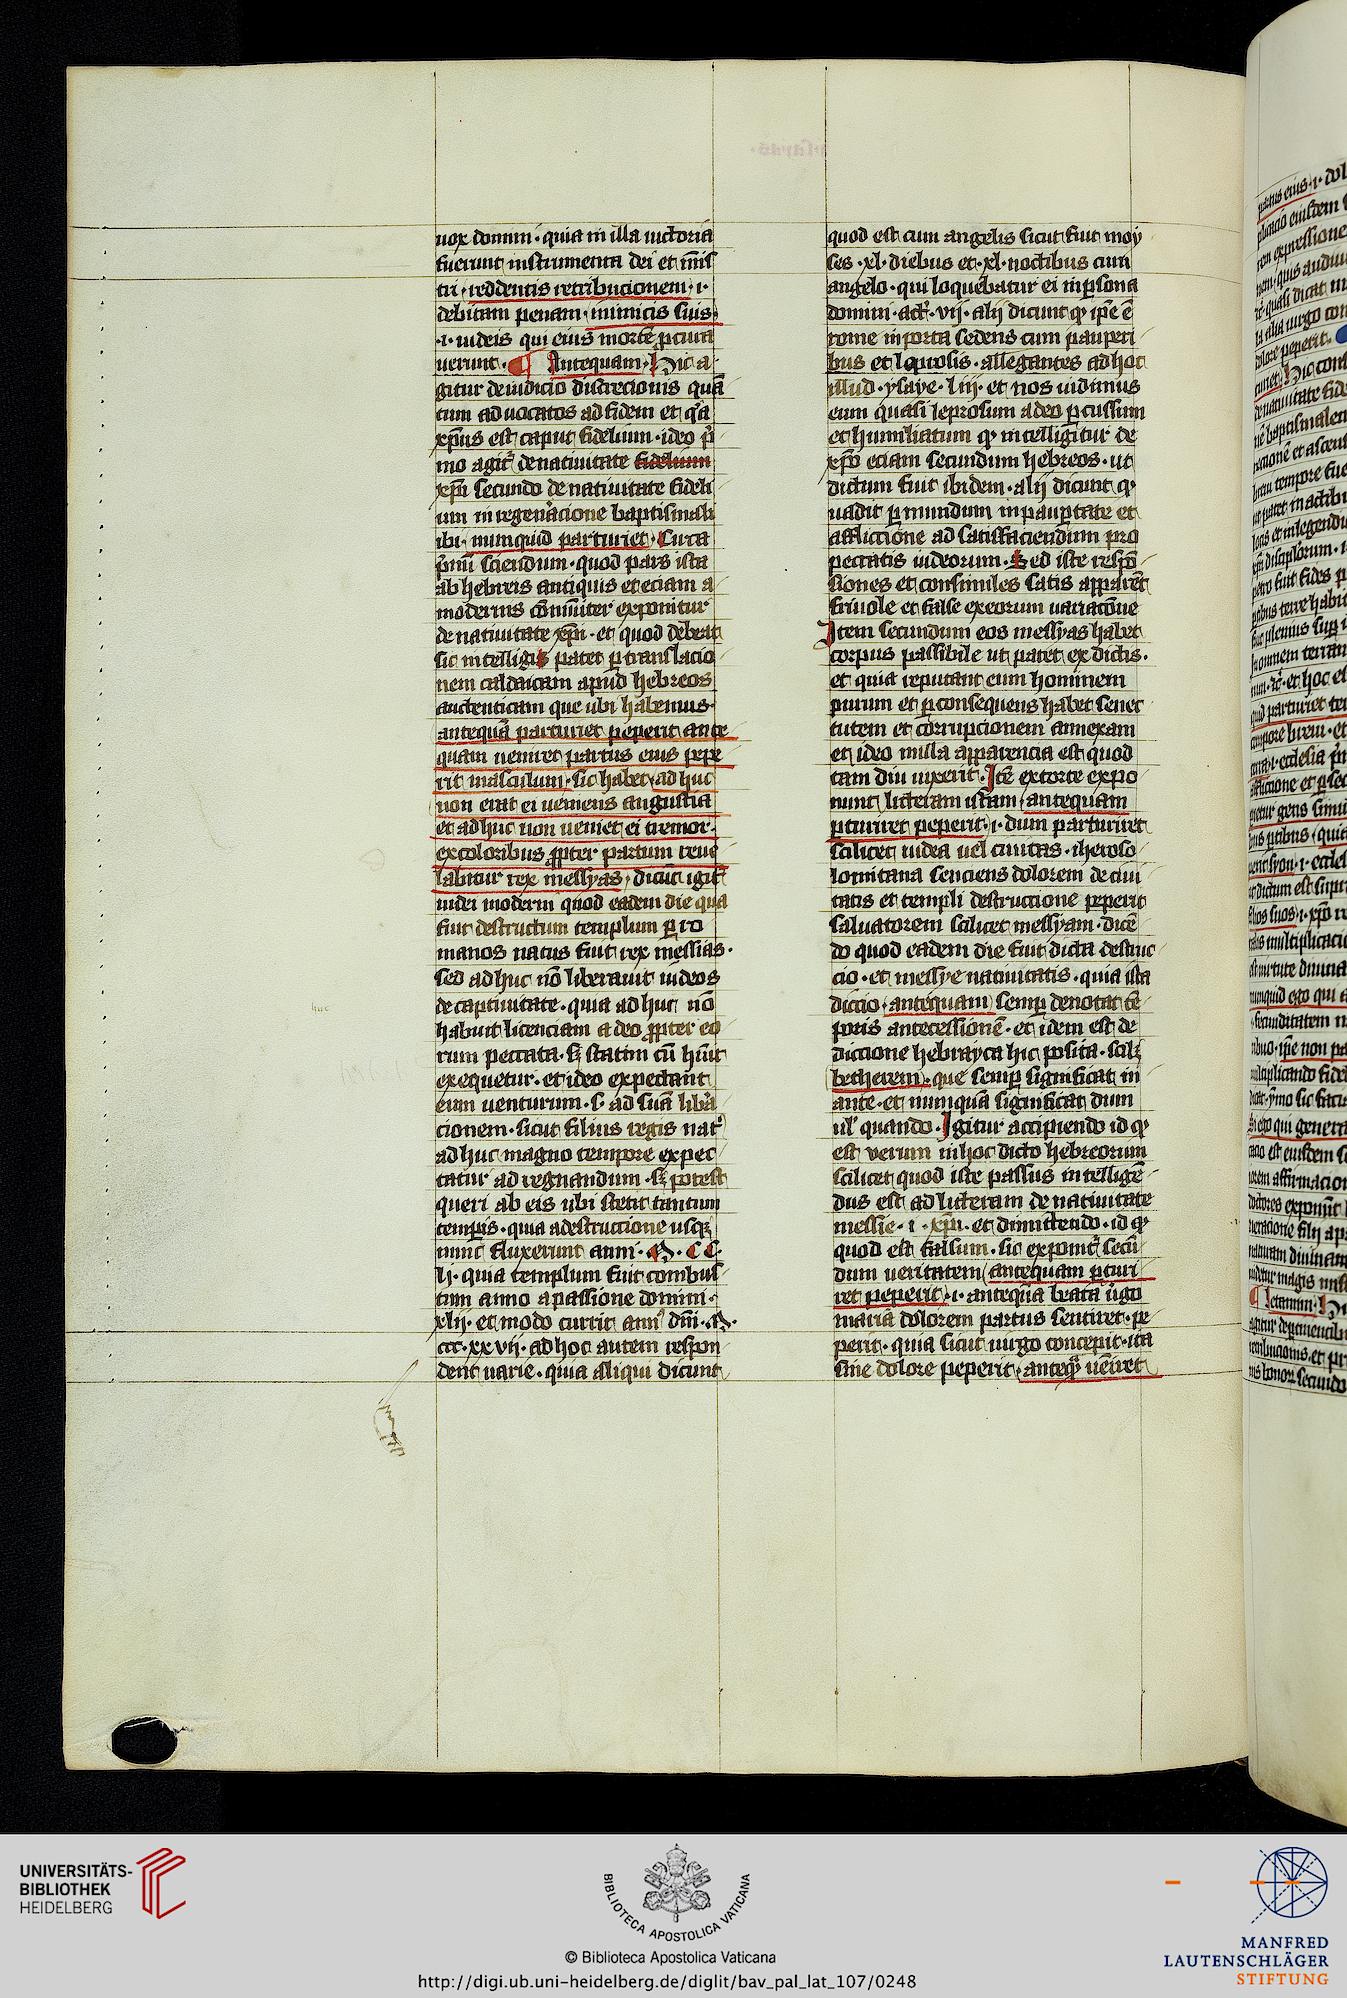 uox domini · quia in illa uictoria
fuerunt instrumenta dei et mīis
tri · reddentis retribucionem · i ·
debitam penam · inimicis suis ·
· i · iudeis qui eius mortē ꝓcura
uerunt · ¶ Antequam · Hic a
gitur de iudicio discrecionis quā
tum ad uocatos ad fidem et qͣa
xp̄us est caput fidelium · ideo pͥ
mo agitᷣ de natiuitate fidelium
xp̄i secundo de natiuitate fideli
um in regenͣacione baptismali
ibi · numquid parturiet · Circa
pͥmū sciendum · quod pars ista
ab hebreis antiquis et eciam a
modernis cōmūiter exponitur
de natiuitate xp̄i · et quod debeat
sic intelligi patet ꝑ translacio
nem caldaicam apud hebreos
autenticam que ubi habemus ·
antequā parturiet peperit ante
quam ueniret partus eius pepe
rit masculum · sic habet · ad huc
non erat ei ueniens angustia
et ad huc non ueniet ei tremor ·
ex doloribus ꝓpter partum reue
labitur rex messyas · dicūt igitᷣ
iudei moderni quod eadem die qua
fuit destructum templum ꝑ ro
manos natus fuit rex messias ·
sed ad huc nō liberauit iudeos
de captiuitate · quia ad huc nō
habuit licenciam a deo ꝓpter eo
rum peccata · sꝫ statim cū hūit
exequetur · et ideo expectant
eum uenturum · s · ad suā libͣa
cionem · sicut filius regis natᷣ
ad huc magno tempore expec
tatur ad regnandum · sꝫ potest
queri ab eis ubi stetit tantum
temꝑis · quia a destructione usqꝫ
nunc fluxerunt anni · M · CC ·
lj · quia templum fuit combus
tum anno a passione domini ·
xlij · et modo currit annꝰ dn̄i · M ·
ccc · xxvij · ad hoc autem respon
dent uarie · quia aliqui dicunt
quod est cum angelis sicut fuit moy
ses · xl · diebus et · xl · noctibus cum
angelo · qui loquebatur ei in ꝑsona
domini · act᷒ · vij · alij dicunt ꝙ ip̄e ē
rome in porta sedens cum pauperi
bus et leprosis · allegantes ad hoc
illud · ysaye · liij · et nos uidimus
eum quasi leprosum a deo ꝑcussum
et humiliatum ꝙ intelligitur de
xp̄o eciam secundum hebreos · ut
dictum fuit ibidem · alij dicunt ꝙ
uadit ꝑ mundum in pauꝑtate et
afflictione ad satisfaciendum pro
peccatis iudeorum · Sed iste respō
siones et consimiles satis apparēt
friuole et false ex eorum uariacōne
Item secundum eos messyas habet
corpus passibile ut patet ex dictis ·
et quia reputant eum hominem
purum et ꝑ consequens habet senec
tutem et corrupcionem annexam
et ideo nulla apparencia est quod
tam diu uixerit · Itē extorte expo
nunt litteram istam · antequam
ꝑturiret peperit · i · dum parturiret
scilicet iudea uel ciuitas · iheroso
lomitana senciens dolorem de ciui
tatis et templi destructione peperit
saluatorem scilicet messyam · dicē
do quod eadem die fuit dicta destruc
cio · et messye natiuitatis · quia ista
diccio · antequam semꝑ denotat tē
poris antecessionē · et idem est de
diccione hebrayca hic posita · scilꝫ
betherem · que semꝑ significat in
ante · et numquā significat dum
ul' quando · Igitur accipiendo id ꝙ
est verum in hoc dicto hebreorum
scilicet quod iste passus intelligē
dus est ad litteram de natiuitate
messie · i · xp̄i · et dimittendo · id ꝙ
quod est falsum · sic exponitᷣ secū
dum ueritatem antequam ꝑturi
ret peperit · i · antequā beata uͥgo
maria dolorem partus sentiret · pe
perit · quia sicut uirgo concepit · ita
sine dolore peperit · anteqͣ uēiret
huc
UNIVERSITÄTS-
BIBLIOTHEK
HEIDELBERG
BIBLIOTECA APOSTOLICA VATICANA
© Biblioteca Apostolica Vaticana
http://digi.ub.uni-heidelberg.de/diglit/bav_pal_lat_107/0248
MANFRED
LAUTENSCHLÄGER
STIFTUNG